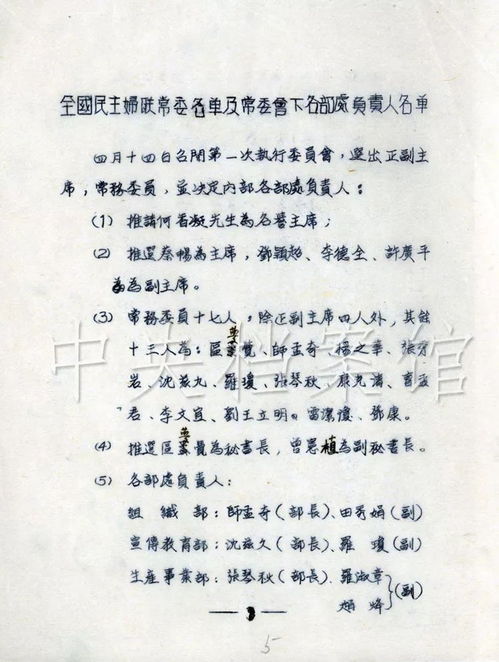 全國民主婦联常委名单及常委會下各部處負責人名单
四月十四日召開第一次執行委員會，選出正副主
席，常務委員，並决定内部各部處負責人：
(1) 推請何香凝先生為名誉主席；
(2) 推選蔡暢為主席，鄧穎超、李德全、許廣平
為副主席。
(3) 常務委員十七人：除正副主席四人外，其餘
十三人為：區夢覺、師孟奇、楊之華、張
岩、沈兹九、羅瓊、張琴秋、康克清、曹孟
君、李文宜、劉王立明、雷潔瓊、鄧康。
(4) 推選區夢覺為秘書長，曾憲植為副秘書長。
(5) 各部處負責人：
組織部：師孟奇（部長）、田秀娟（副）
宣傳教育部：沈兹久（部長）、羅瓊（副）
生産事業部：張琴秋（部長）、羅淑章
烽 （副）
5
中央档案馆